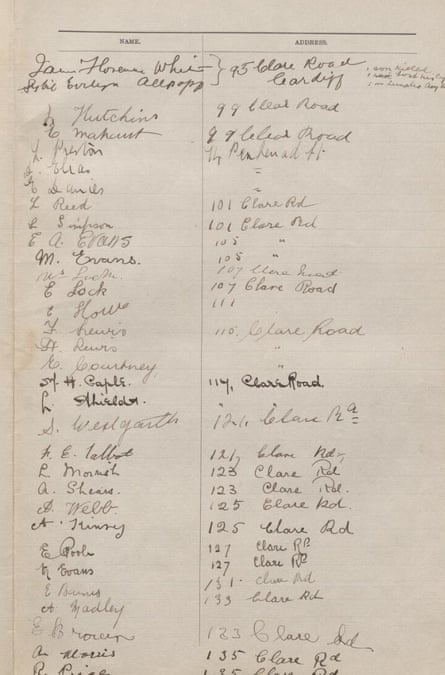 NAME. ADDRESS.
Florence White } 95 Clare Road
Evelyn Allsopp Cardiff
1 son killed
1
Hutchins 99 Clare Road
E 99 Clare Road
L. Preston
"
E Davies "
L Reed 101 Clare Rd
L Simpson 101 Clare Rd
E A. Evans 105 "
M. Evans. 105 "
107 Clare
E Lock 107 Clare Road
E Howe 111
F Lewis 115 Clare Road
H. Lewis "
E. Courtney "
H. Caple. 117, Clare Road.
L. Shields. "
S. Westgarth 121, Clare Rd
E. Talbot 121, Clare Rd,
L Morrish 123 Clare Rd
A. Shears. 123 Clare Rd.
A. Webb. 125 Clare Rd.
A. Kinsey 125 Clare Rd
E Poole 127 Clare Rd
N Evans 127 Clare Rd
E Barnes 131 Clare Rd
A Nadley 133 Clare Rd
E Brown 133 Clare Rd
A. Morris 135 Clare Rd
R Price 135 Clare Rd